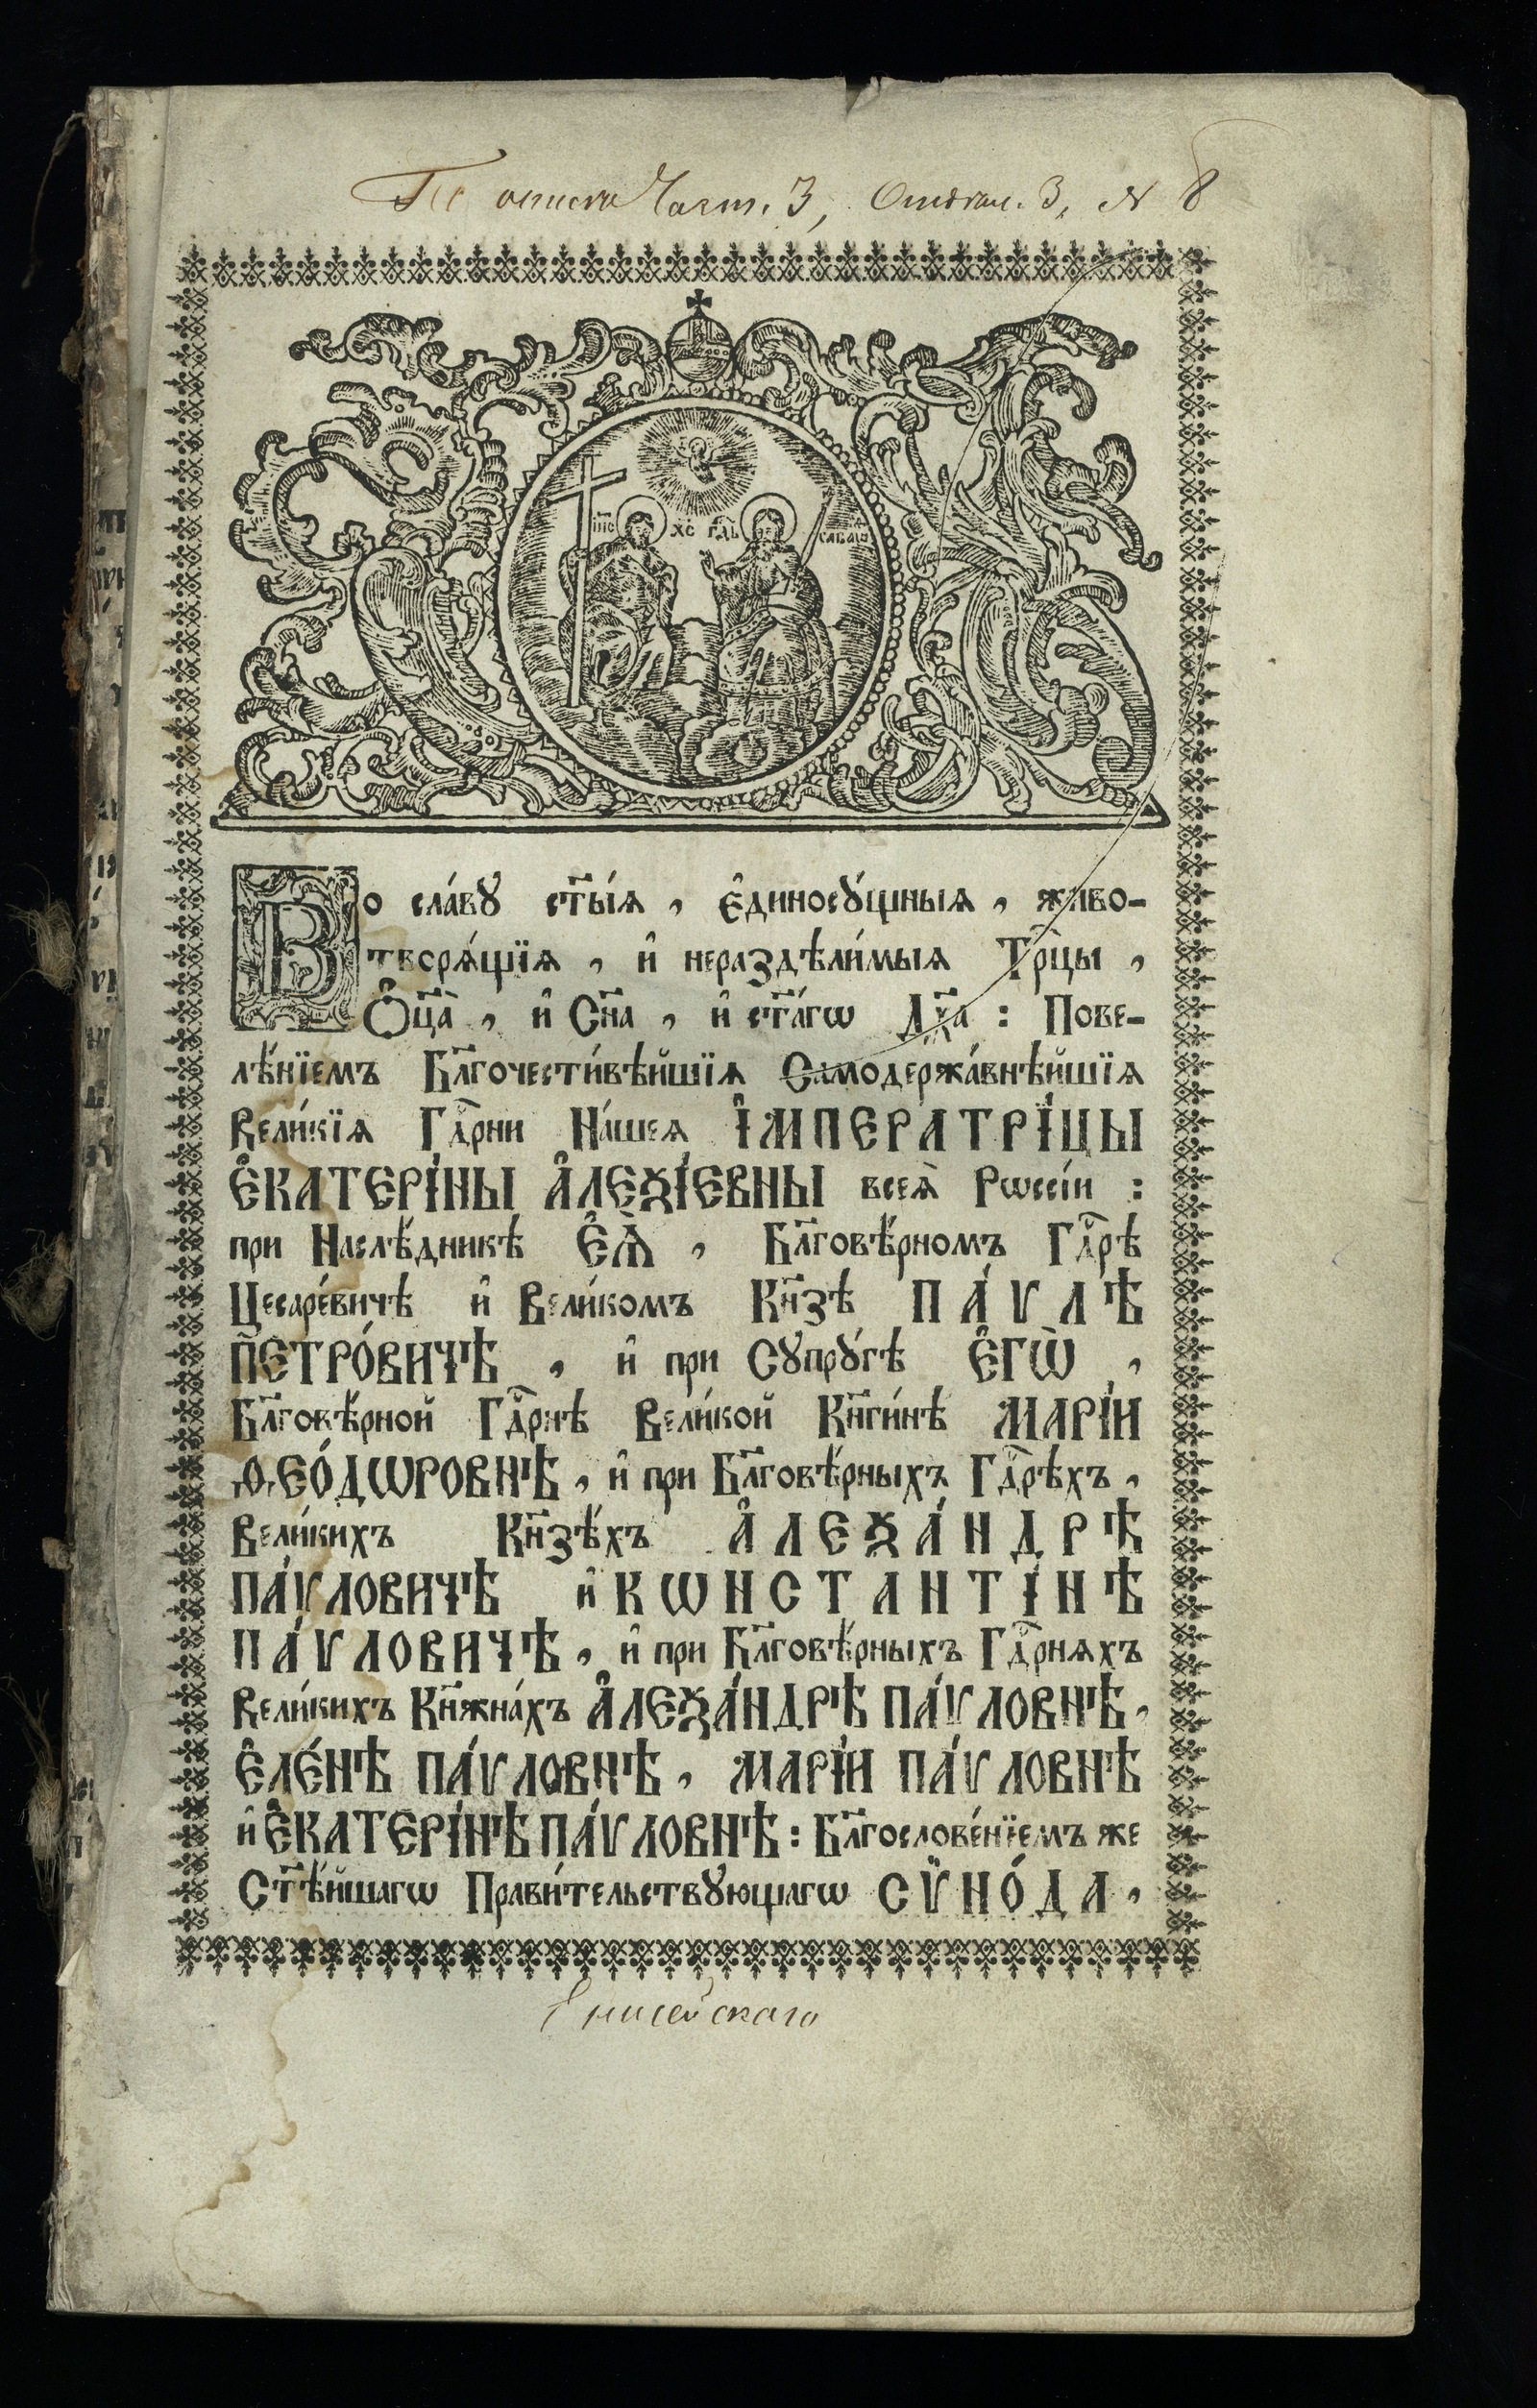 По описи Част. 3, Отдѣл. 3, N 8
І҆и҃с Хс҃ Гдⷭ҇ь Саваѡ҆
Во сла́вꙋ ст҃ы́ѧ , є҆диносꙋ́щныѧ , живо-
творѧ́щїѧ , и҆ нераздѣли́мыѧ Трⷪ҇цы ,
Ѻ҆ц҃а̀ , и҆ Сн҃а , и҆ ст҃а́гѡ Дх҃а : Пове-
лѣ́нїемъ Бл҃гочести́вѣйшїѧ Самодержа́внѣйшїѧ
Вели́кїѧ Гдⷭ҇рни На́шеѧ І҆МПЕРАТРІ́ЦЫ
Є҆КАТЕРІ́НЫ А҆ЛЕѮІ́ЕВНЫ всеѧ̀ Рѡссі́и :
при Наслѣ́дникѣ Є҆Ѧ̀ , Бл҃говѣ́рномъ Гдⷭ҇рѣ
Цесаре́вичѣ и҆ Вели́комъ Кн҃зѣ ПА́ѴЛѢ
ПЕТРО́ВИЧѢ , и҆ при Сꙋпрꙋ́гѣ Є҆ГѠ̀ ,
Бл҃говѣ́рной Гдⷭ҇рнѣ Вели́кой Кн҃ги́нѣ МАРІ́И
Ѳ҆ЕО́ДѠРОВНѢ , и҆ при Бл҃говѣ́рныхъ Гдⷭ҇рѣхъ ,
Вели́кихъ Кн҃зѣ́хъ А҆ЛЕѮА́НДРѢ
ПА́ѴЛОВИЧѢ и҆ КѠНСТАНТІ́НѢ
ПА́ѴЛОВИЧѢ , и҆ при Бл҃говѣ́рныхъ Гдⷭ҇рнѧхъ
Вели́кихъ Кн҃жна́хъ А҆ЛЕѮА́НДРѢ ПА́ѴЛОВНѢ ,
Є҆ЛЕ́НѢ ПА́ѴЛОВНѢ , МАРІ́И ПА́ѴЛОВНѢ
и҆ Є҆КАТЕРІ́НѢ ПА́ѴЛОВНѢ : Бл҃гослове́нїемъ же
Ст҃ѣ́йшагѡ Прави́тельствꙋющагѡ СѴ̈НО́ДА ,
Енисейскаго